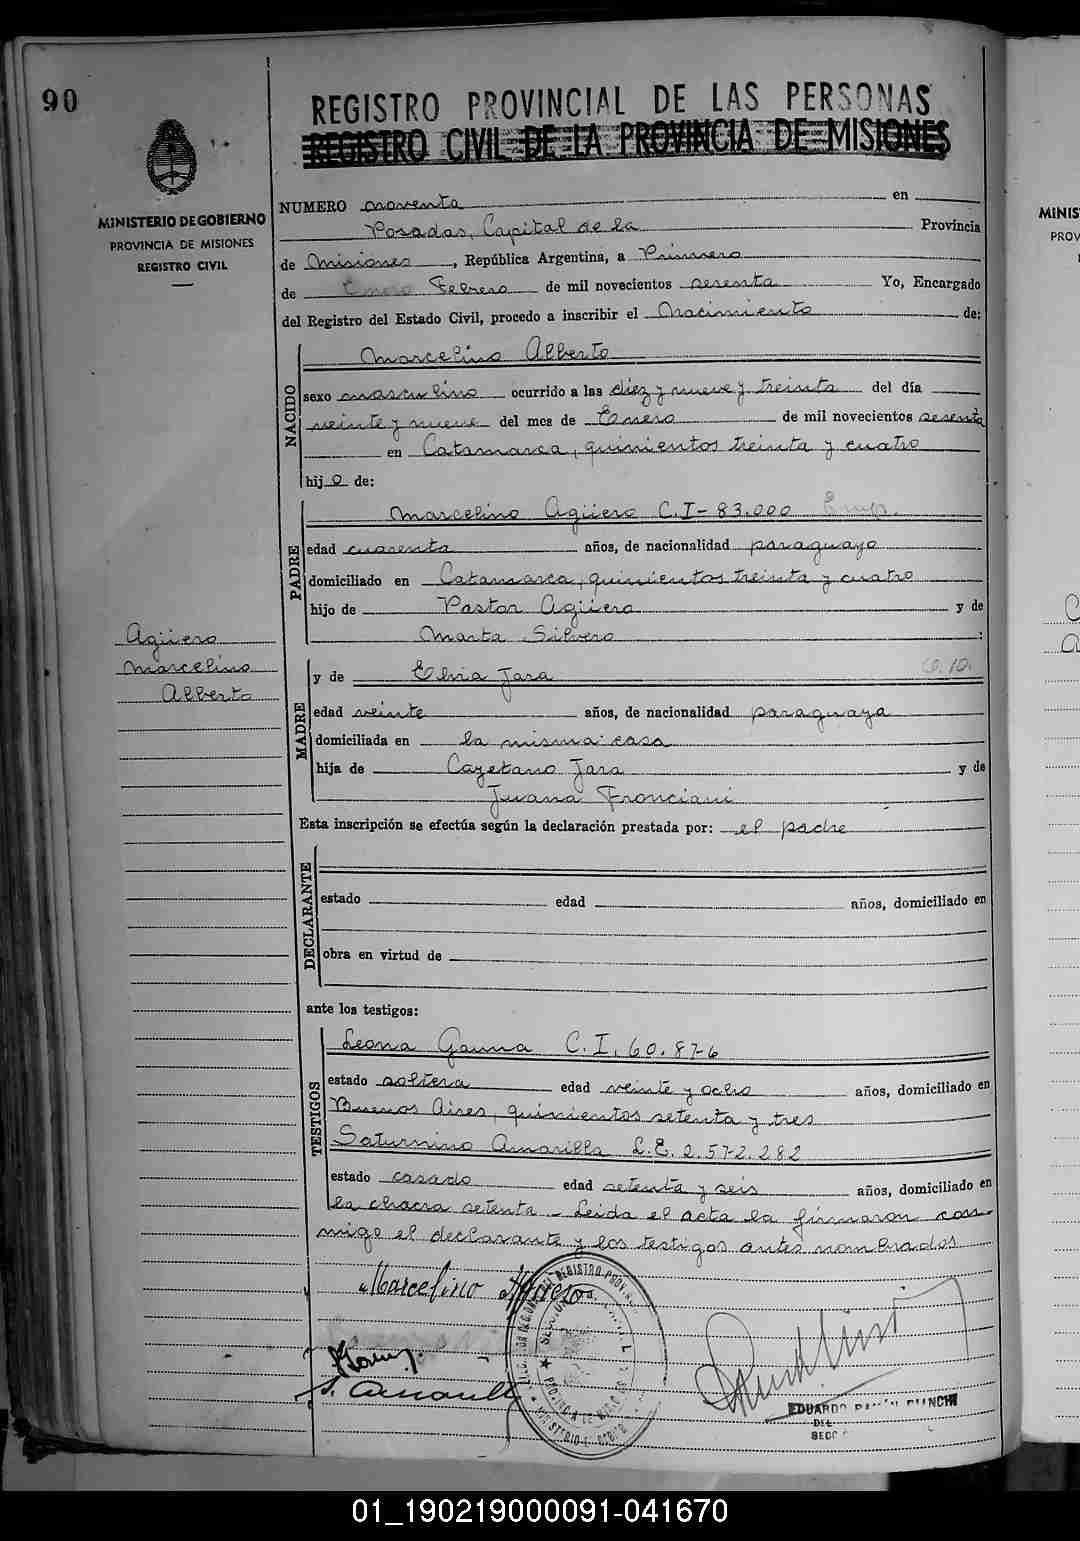 90
REGISTRO PROVINCIAL DE LAS PERSONAS
REGISTRO CIVIL DE LA PROVINCIA DE MISIONES
MINISTERIO DE GOBIERNO
PROVINCIA DE MISIONES
REGISTRO CIVIL
NUMERO noventa en
Posadas, Capital de la Provincia
de Misiones, República Argentina, a Primero
de Enero Febrero de mil novecientos sesenta Yo, Encargado
del Registro del Estado Civil, procedo a inscribir el Nacimiento de:
NACIDO
Marcelino Alberto
sexo masculino ocurrido a las diez y nueve y treinta del día
veinte y nueve del mes de Enero de mil novecientos sesenta
en Catamarca, quinientos treinta y cuatro
hijo de:
PADRE
Marcelino Agüero C.I- 83.000 Emp.
edad cuarenta años, de nacionalidad paraguayo
domiciliado en Catamarca, quinientos treinta y cuatro
hijo de Pastor Agüero y de
Marta Silvero :
Agüero
Marcelino
Alberto
MADRE
y de Elvia Jara
edad veinte años, de nacionalidad paraguaya
domiciliada en la misma casa
hija de Cayetano Jara y de
Juana Fronciani
Esta inscripción se efectúa según la declaración prestada por: el padre
DECLARANTE
estado edad años, domiciliado en
obra en virtud de
ante los testigos:
TESTIGOS
Leona Gauna C.I. 60.876
estado soltera edad veinte y ocho años, domiciliado en
Buenos Aires, quinientos setenta y tres
Saturnino Amarilla L.E. 2.572.282
estado casado edad setenta y seis años, domiciliado en
la chacra setenta - Leida el acta la firmaron con-
migo el declarante y los testigos antes nombrados
Marcelino Agüero
S. Amarilla
EDUARDO RAMÓN BIANCHI
DEL
SECC
MINIS
PROV
01_190219000091-041670